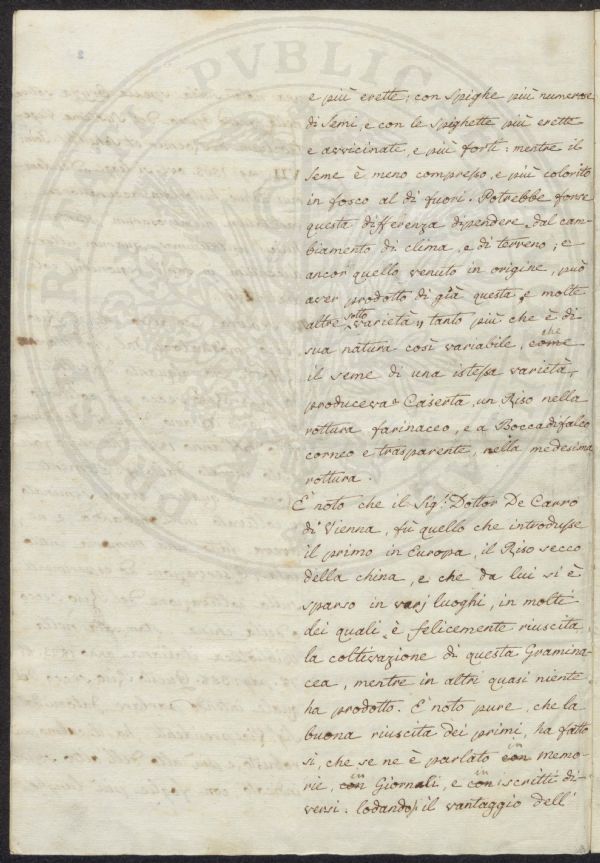 PVBLIC
e più erette; con spighe più numerose
di semi, e con le spighette più erette
e avvicinate, e più forti: mentre il
seme è meno compresso, e più colorito
in fosco al di fuori. Potrebbe forse
questa differenza dipendere dal cam-
biamento di clima, e di terreno; e
ancor quello venuto in origine, può
aver prodotto di già questa, e molte
altre sotto varietà, tanto più che è di
sua natura così variabile, come che
il seme di una istessa varietà,
produceva a Caserta, un Riso nella
rottura farinaceo, e a Boccadifalco
corneo e trasparente, nella medesima
rottura.
È noto che il Sig.r Dottor De Carro
di Vienna, fù quello che introdusse
il primo in Europa, il Riso secco
della china, e che da lui si è
sparso in varj luoghi, in molti
dei quali è felicemente riuscita
la coltivazione di questa Gramina-
cea, mentre in altri quasi niente
ha prodotto. È noto pure, che la
buona riuscita dei primi, ha fatto
sì, che se ne è parlato con in memo-
rie, con in Giornali, e con in scritti di-
versi: lodandosi il vantaggio dell'